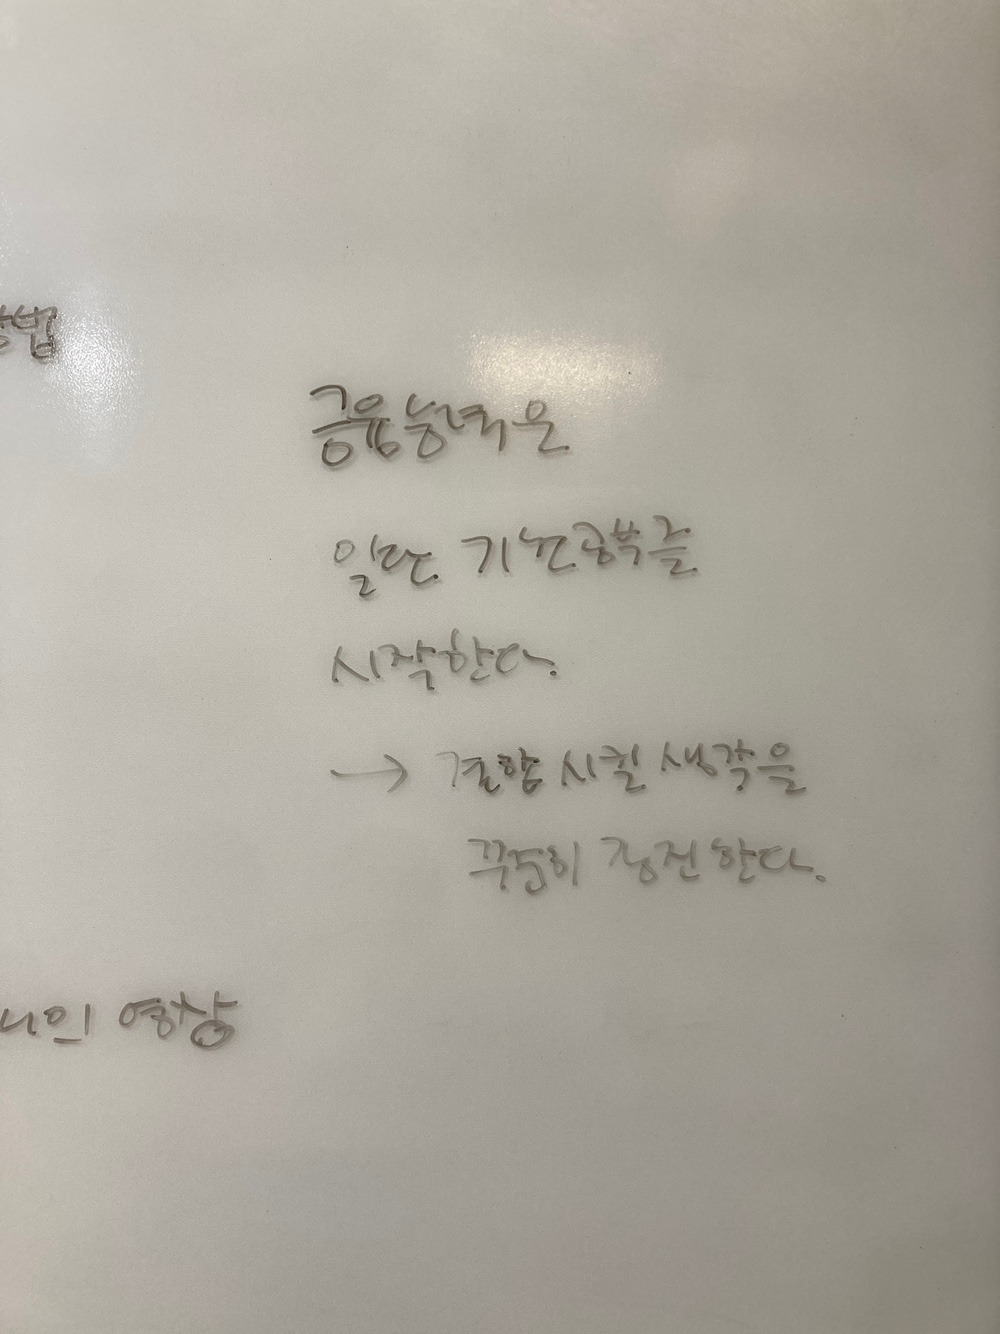 방법
금융능력은
일단 기본공부를
시작한다.
→ 결합 시킬 생각을
꾸준히 장전한다.
나의 영상